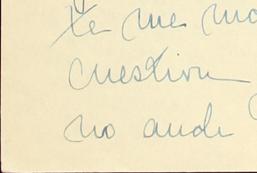 te me
cuestion
no ande